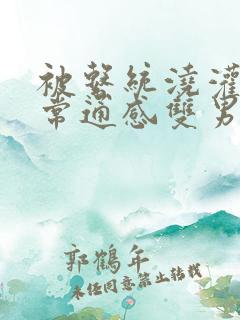 被繫統澆灌
常通感雙男
郭鶴年
未經同意禁止轉載